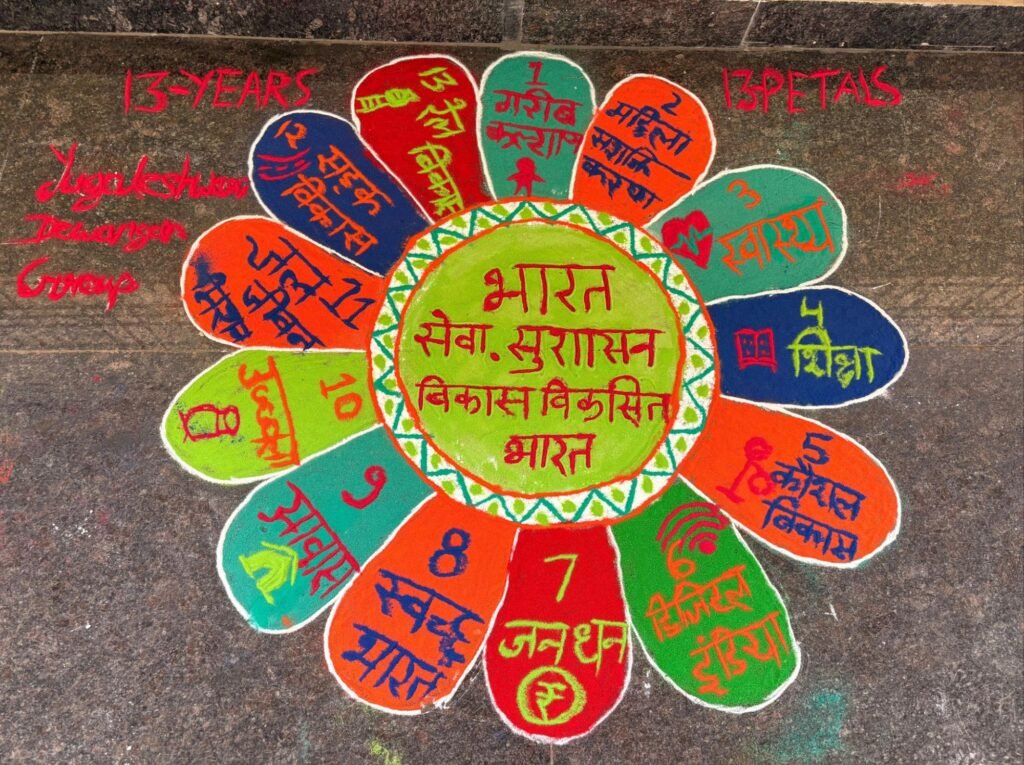 13-YEARS
13-PETALS
Yugaleshwar
Dewangan
Group
भारत
सेवा. सुशासन
विकास विकसित
भारत
1
गरीब
कल्याण
2
महिला
सशक्ति
करण
3
स्वास्थ्य
4
शिक्षा
5
कौशल
विकास
6
डिजिटल
इंडिया
7
जनधन
₹
8
स्वच्छ
भारत
9
आवास
10
उज्जवला
11
जल
जीवन
12
सड़क
विकास
13 रेल
विकास